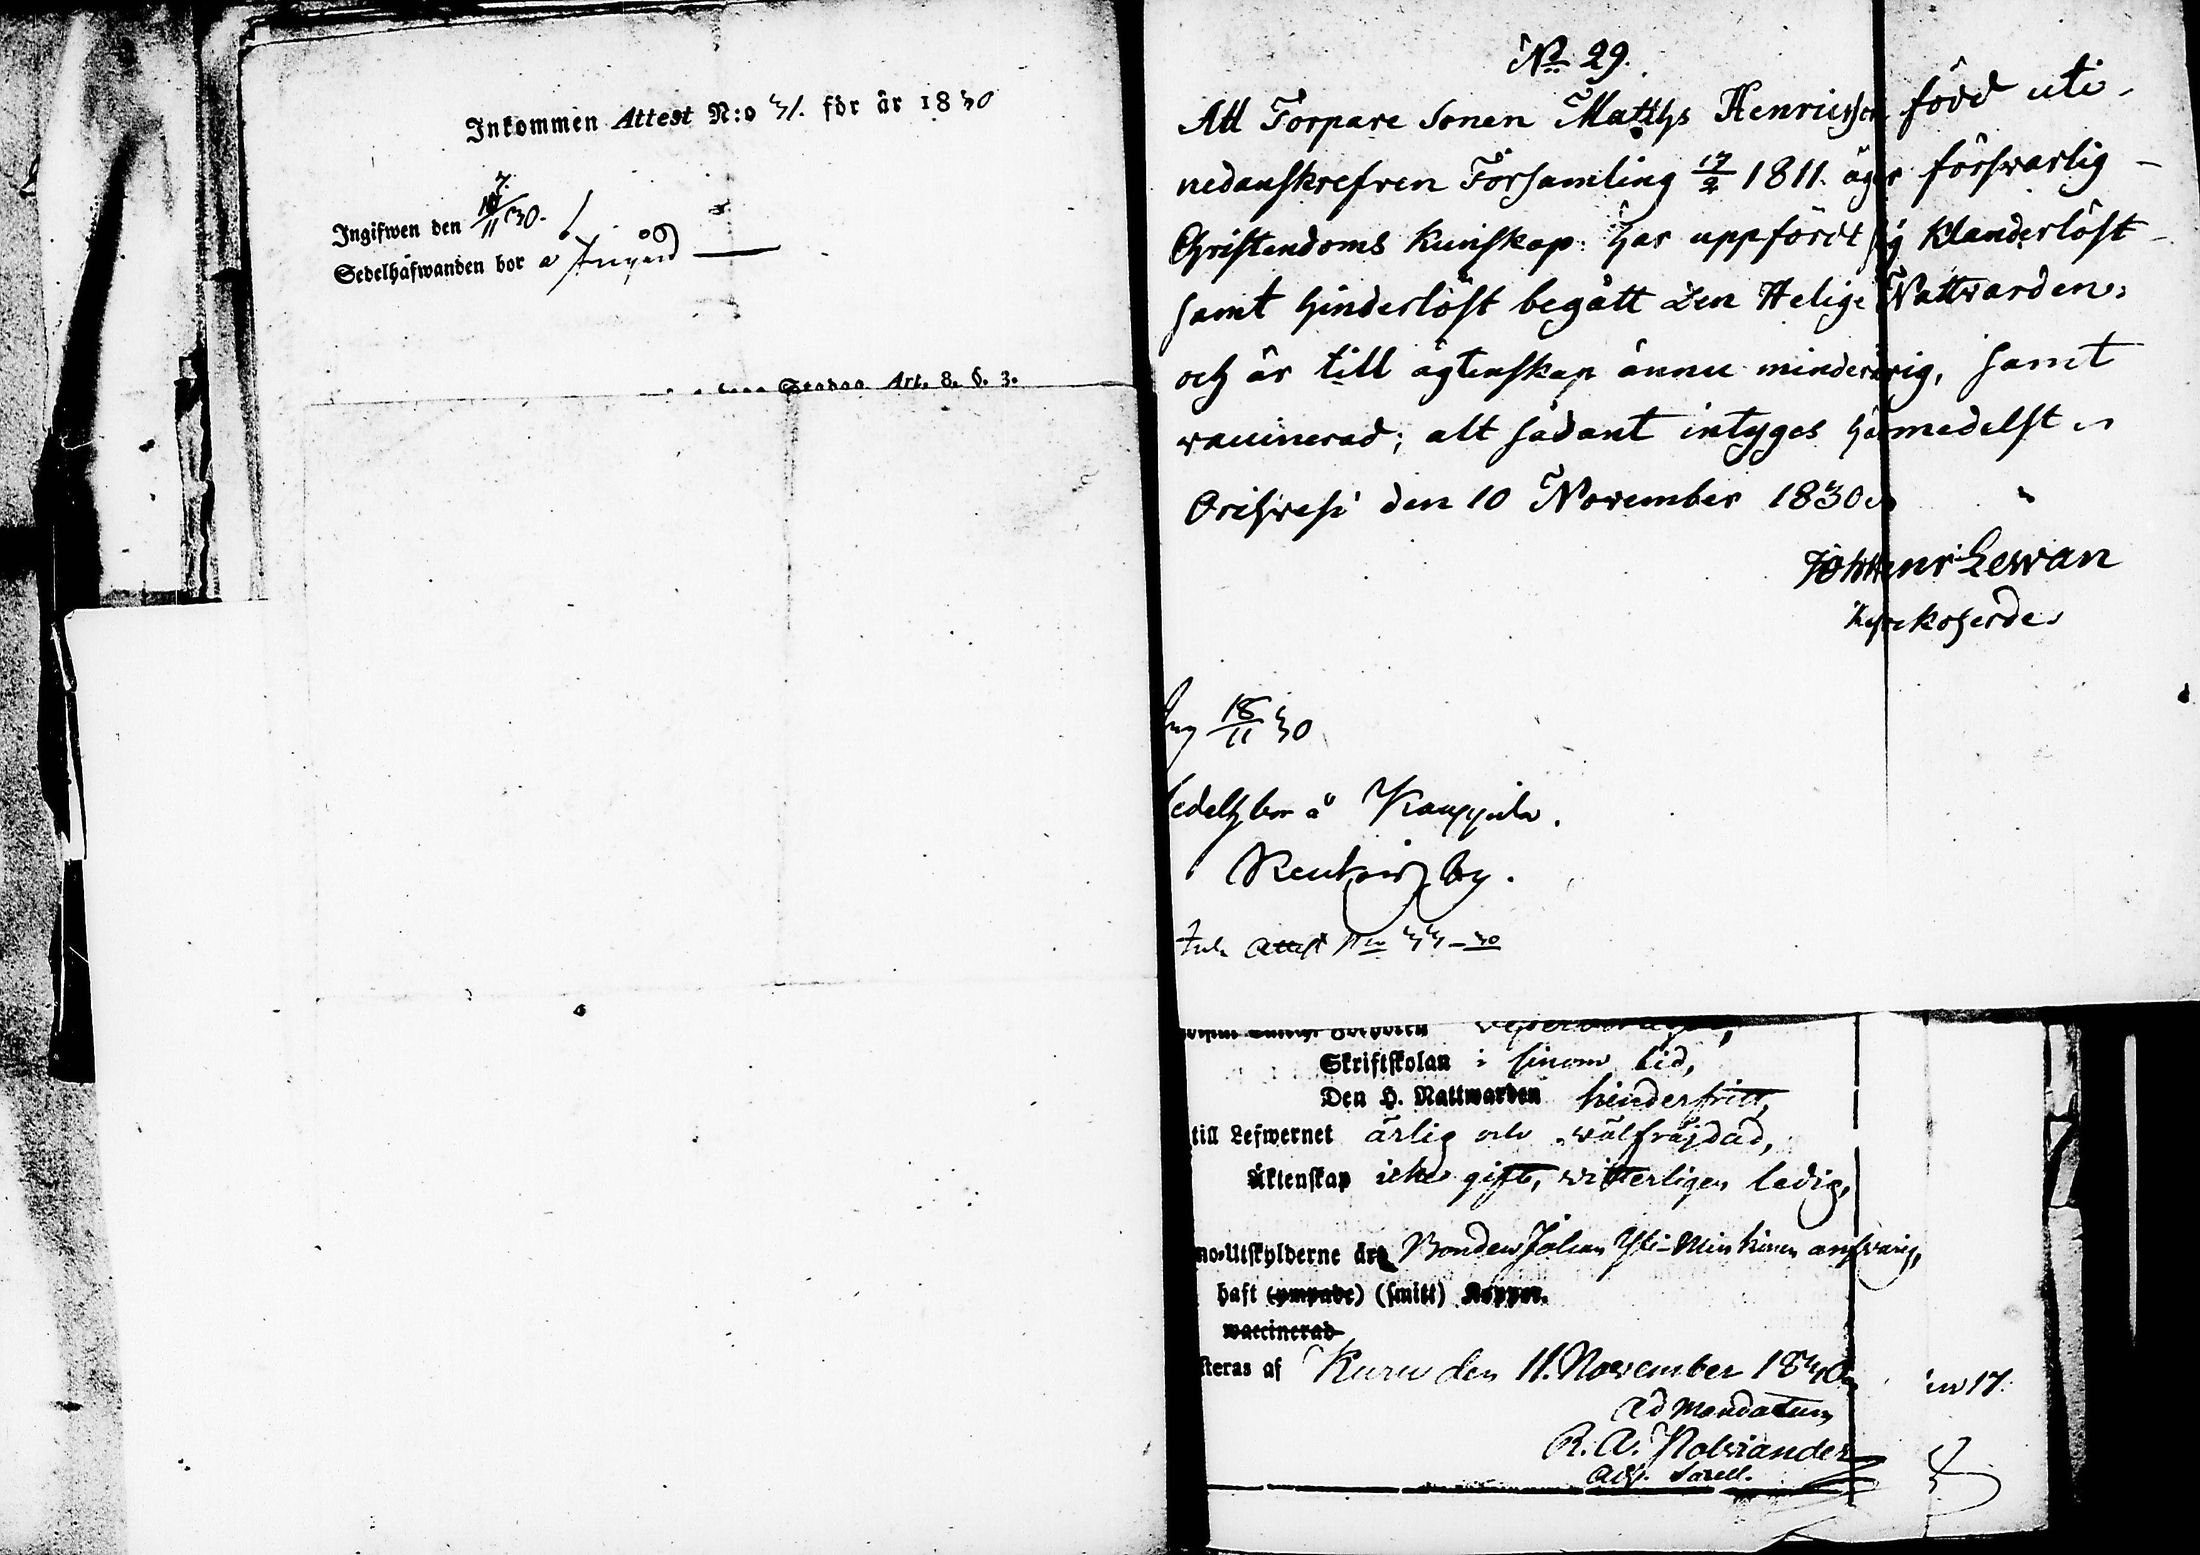 Inkommen Attest N:o 31. för år 1830
Ingifwen den 17/11 30.
Sedelhafwanden bor å
Art. 8. §. 3.
No 29.
Att Torpare Sonen Matths Henricsson född uti
nedanskrefven Församling 17/2 1811. äger försvarlig
Christendoms Kunskap: har uppfördt sig klanderlöst
samt hinderlöst begått den Helige Nattvarden,
och är till ägtenskap ännu minderårig, samt
vaccinerad; alt sådant intyges härmedelst
Orihvesi den 10 November 1830
Joh Henr Lewan
Kyrkoherde
Ing 18/11 30
Sedelh bor å Kauppila.
by.
Ink Attest No 33-30
Skriftskolan i sinom tid,
Den H. Nattwarden hinderfritt,
till Lefwernet ärlig och wälfräjdad,
Äktenskap icke gift, witterligen ledig,
no-Utskylderne är Bonden Johan Yli- answarig,
haft (ympade) (smitt) Koppor.
waccinerad
steras af Kuru den 11. November 1830
ad mandatum
R. A. Holviander
Adj. Sacell.
17.